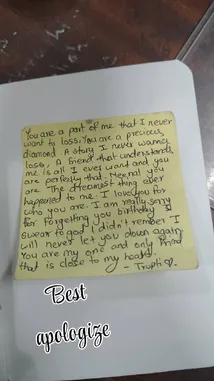 You are a part of me that I never
want to loss. You are a precious
diamond. A story I never wanna
lose, A friend that understands
me is all I ever want and you
are perfectly that. Neenal you
are The dreamest thing ever
happened to me. I love you for
who you are. I am really sorry
for forgetting you birthday I
swear to god I didn't remember I
will never let you down again
You are my one and only friend
that is close to my heart.
- Trupti
Best
apologize